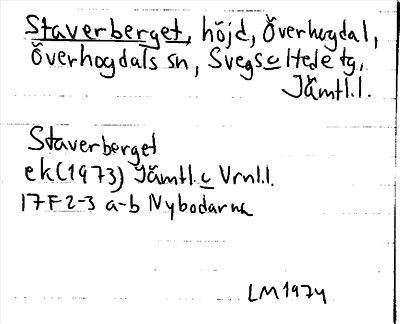 Staverberget, höjd, Överhogdal,
Överhogdals sn, Svegs o Hede tg,
Jämtl.l.
Staverberget
ek (1973) Jämtl. o Vrnl.l.
17F 2-3 a-b Nybodarna
LM 1974